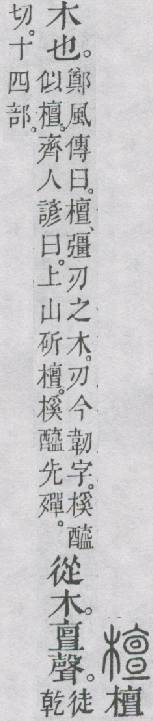 檀檀
木也。
鄭風傳曰。檀、彊刃之木。刃今韌字。榽醯
似檀。齊人諺曰。上山斫檀。榽醯先殫。
從木。亶聲。
徒
乾
切。十四部。